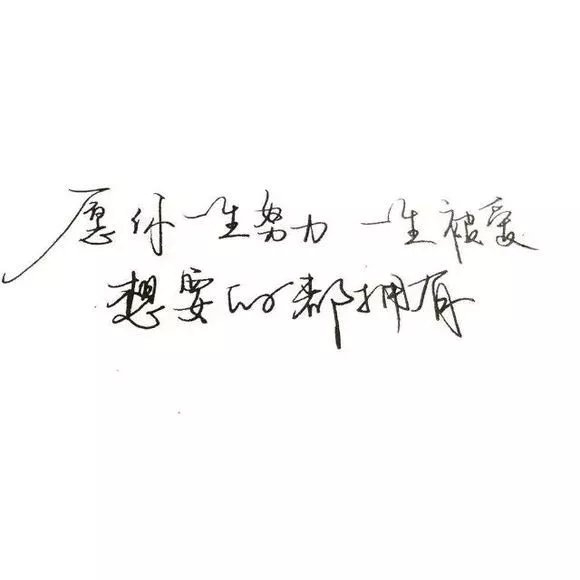 愿你一生努力 一生被爱
想要的都拥有